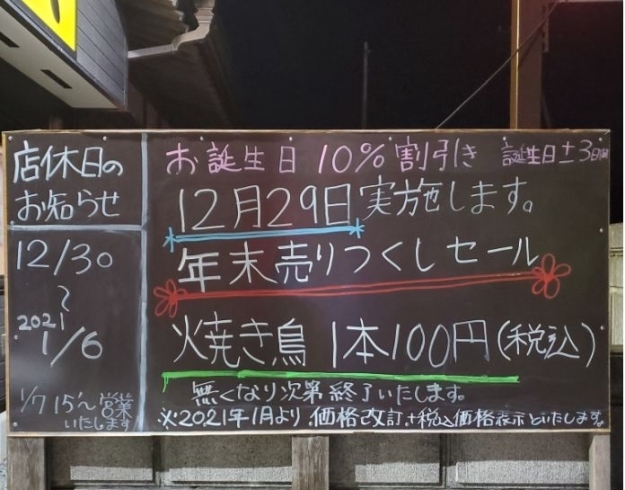 店休日の
お知らせ
12/30
〜
2021
1/6
1/7 15'〜営業
いたします
お誕生日 10% 割引き 誕生日±3日間
12月29日実施します。
年末売りつくしセール
火焼き鳥 1本100円(税込)
無くなり次第終了いたします。
※2021年1月より 価格改訂、税込価格表示といたします。